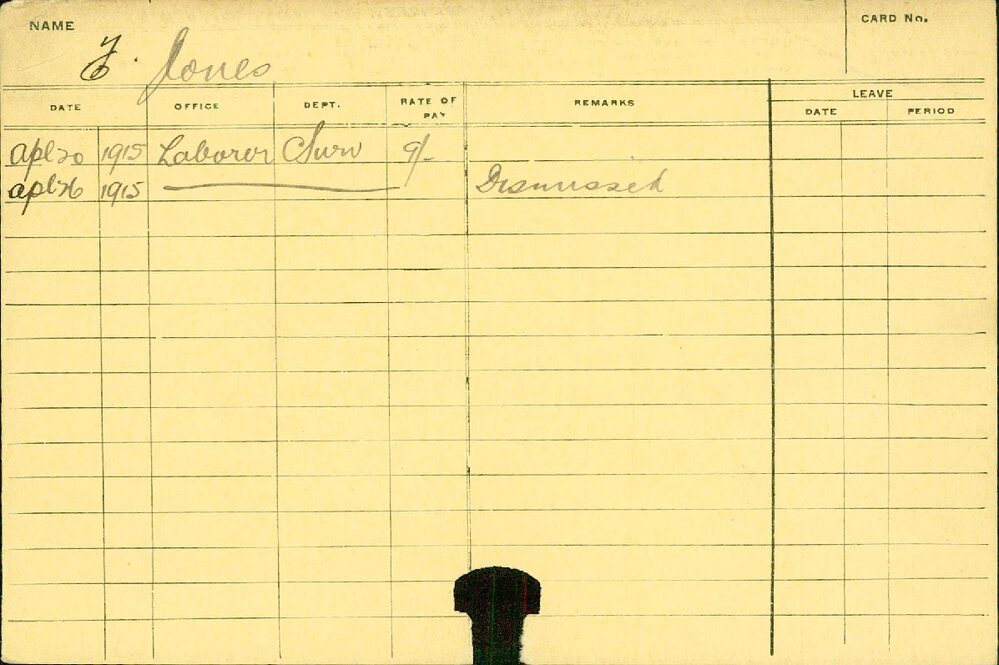 NAME
CARD No.
F. Jones
DATE OFFICE DEPT. RATE OF PAY REMARKS LEAVE
DATE PERIOD
Apl 20 1915 Laborer Surv 9/-
Apl 26 1915 Dismissed